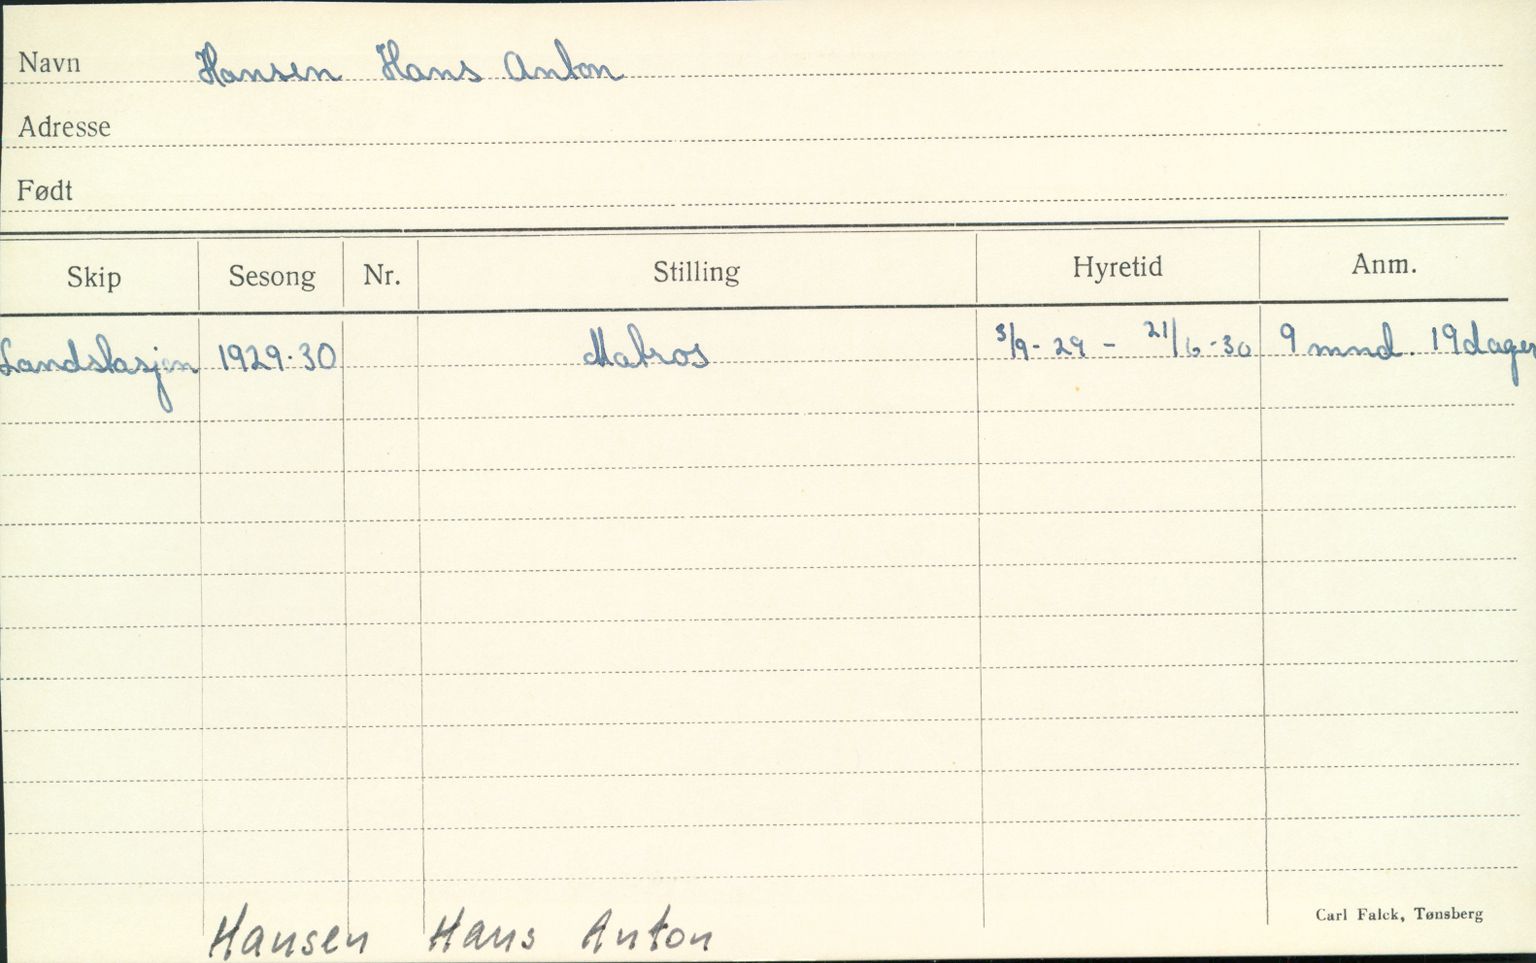 Navn Hansen Hans Anton
Adresse
Født
Skip Sesong Nr. Stilling Hyretid Anm.
Landstasjon 1929-30 Matros 3/9-29 - 21/6-30 9 mnd. 19 dager
Carl Falck, Tønsberg
Hansen Hans Anton